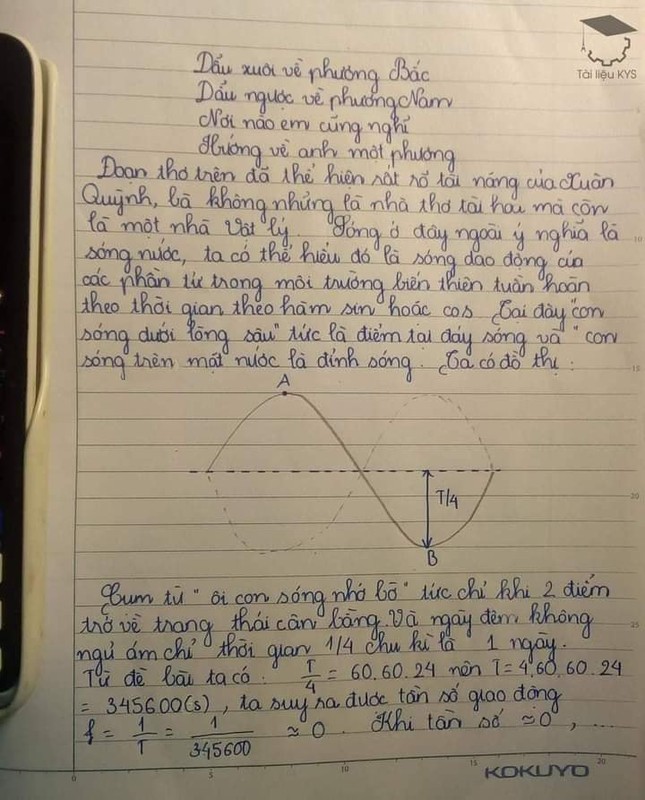 Tài liệu KYS
Dẩu xuôi về phương Bắc
Dẩu ngược về phương Nam
Nơi nào em cũng nghĩ
Hướng về anh một phương
Đoạn thơ trên đã thể hiện rất rõ tài năng của Xuân
Quỳnh, bà không những là nhà thơ tài hoa mà còn
là một nhà Vật lý. Sóng ở đây ngoài ý nghĩa là
sóng nước, ta có thể hiểu đó là sóng dao động của
các phần tử trong môi trường biến thiên tuần hoàn
theo thời gian theo hàm sin hoặc cos. Tại đây "con
sóng dưới lòng sâu" tức là điểm tại đáy sóng và "con
sóng trên mặt nước là đỉnh sóng. Ta có đồ thị:
A
T/4
B
Cụm từ "ôi con sóng nhớ bờ" tức chỉ khi 2 điểm
trở về trạng thái cân bằng. Và ngày đêm không
ngủ ám chỉ thời gian 1/4 chu kì là 1 ngày.
Từ đề bài ta có: T/4 = 60.60.24 nên T = 4.60.60.24
= 345600(s), ta suy ra được tần số giao động
f = 1/T = 1/345600 ≈ 0. Khi tần số ≈ 0, ...
KOKUYO